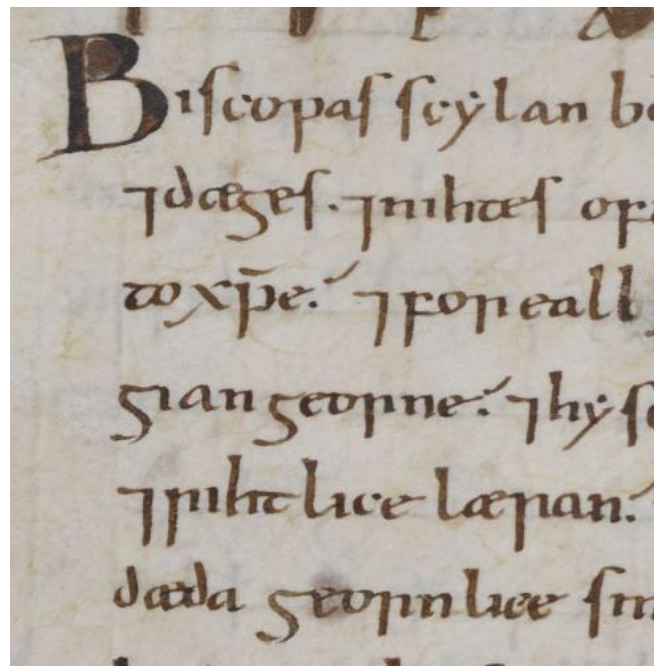 Biscopas scẏlan bo
⁊dæges. ⁊nihtes of
to xp̄e: ⁊ for eall
gian georne: ⁊ hẏ sc
⁊rihtlice læran:
dæda geornlice sm